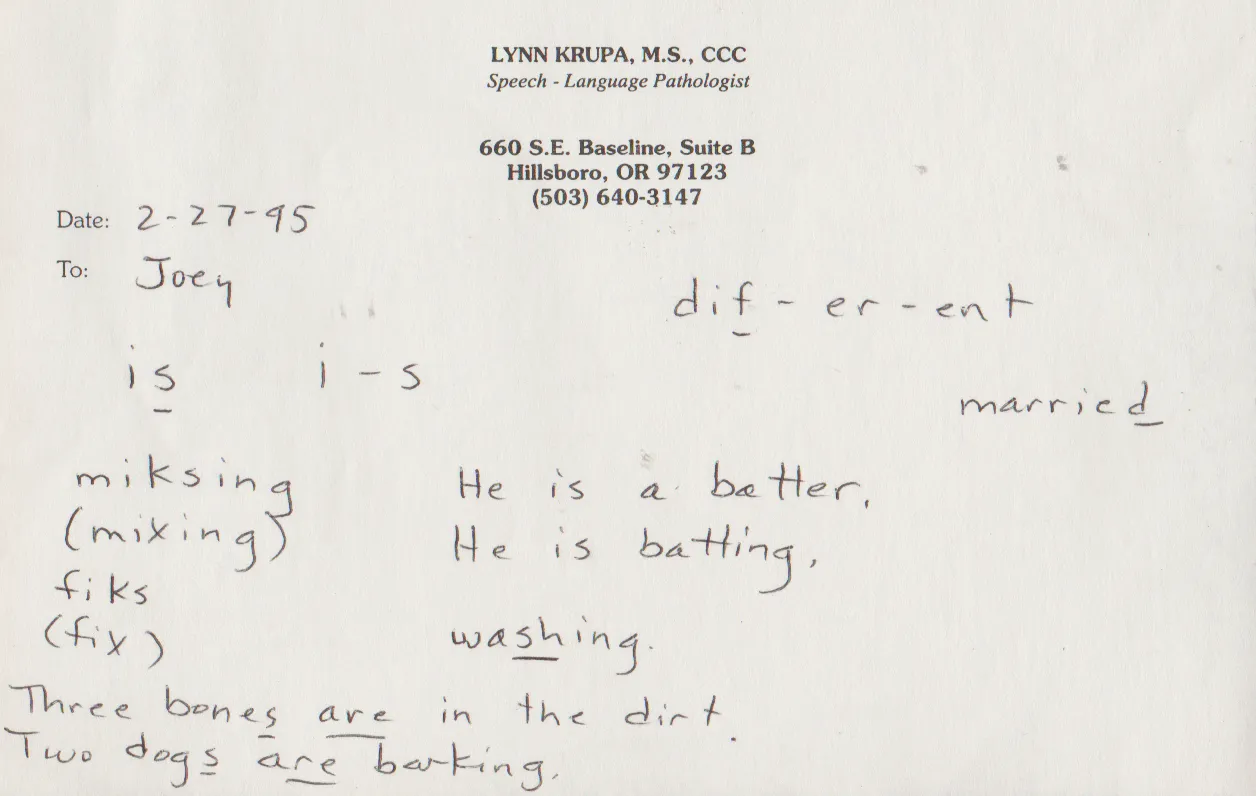 LYNN KRUPA, M.S., CCC
Speech - Language Pathologist
660 S.E. Baseline, Suite B
Hillsboro, OR 97123
(503) 640-3147
Date: 2-27-95
To: Joey
dif - er - ent
is i - s
married
miksing
(mixing)
fiks
(fix)
He is a batter.
He is batting.
washing.
Three bones are in the dirt.
Two dogs are barking.